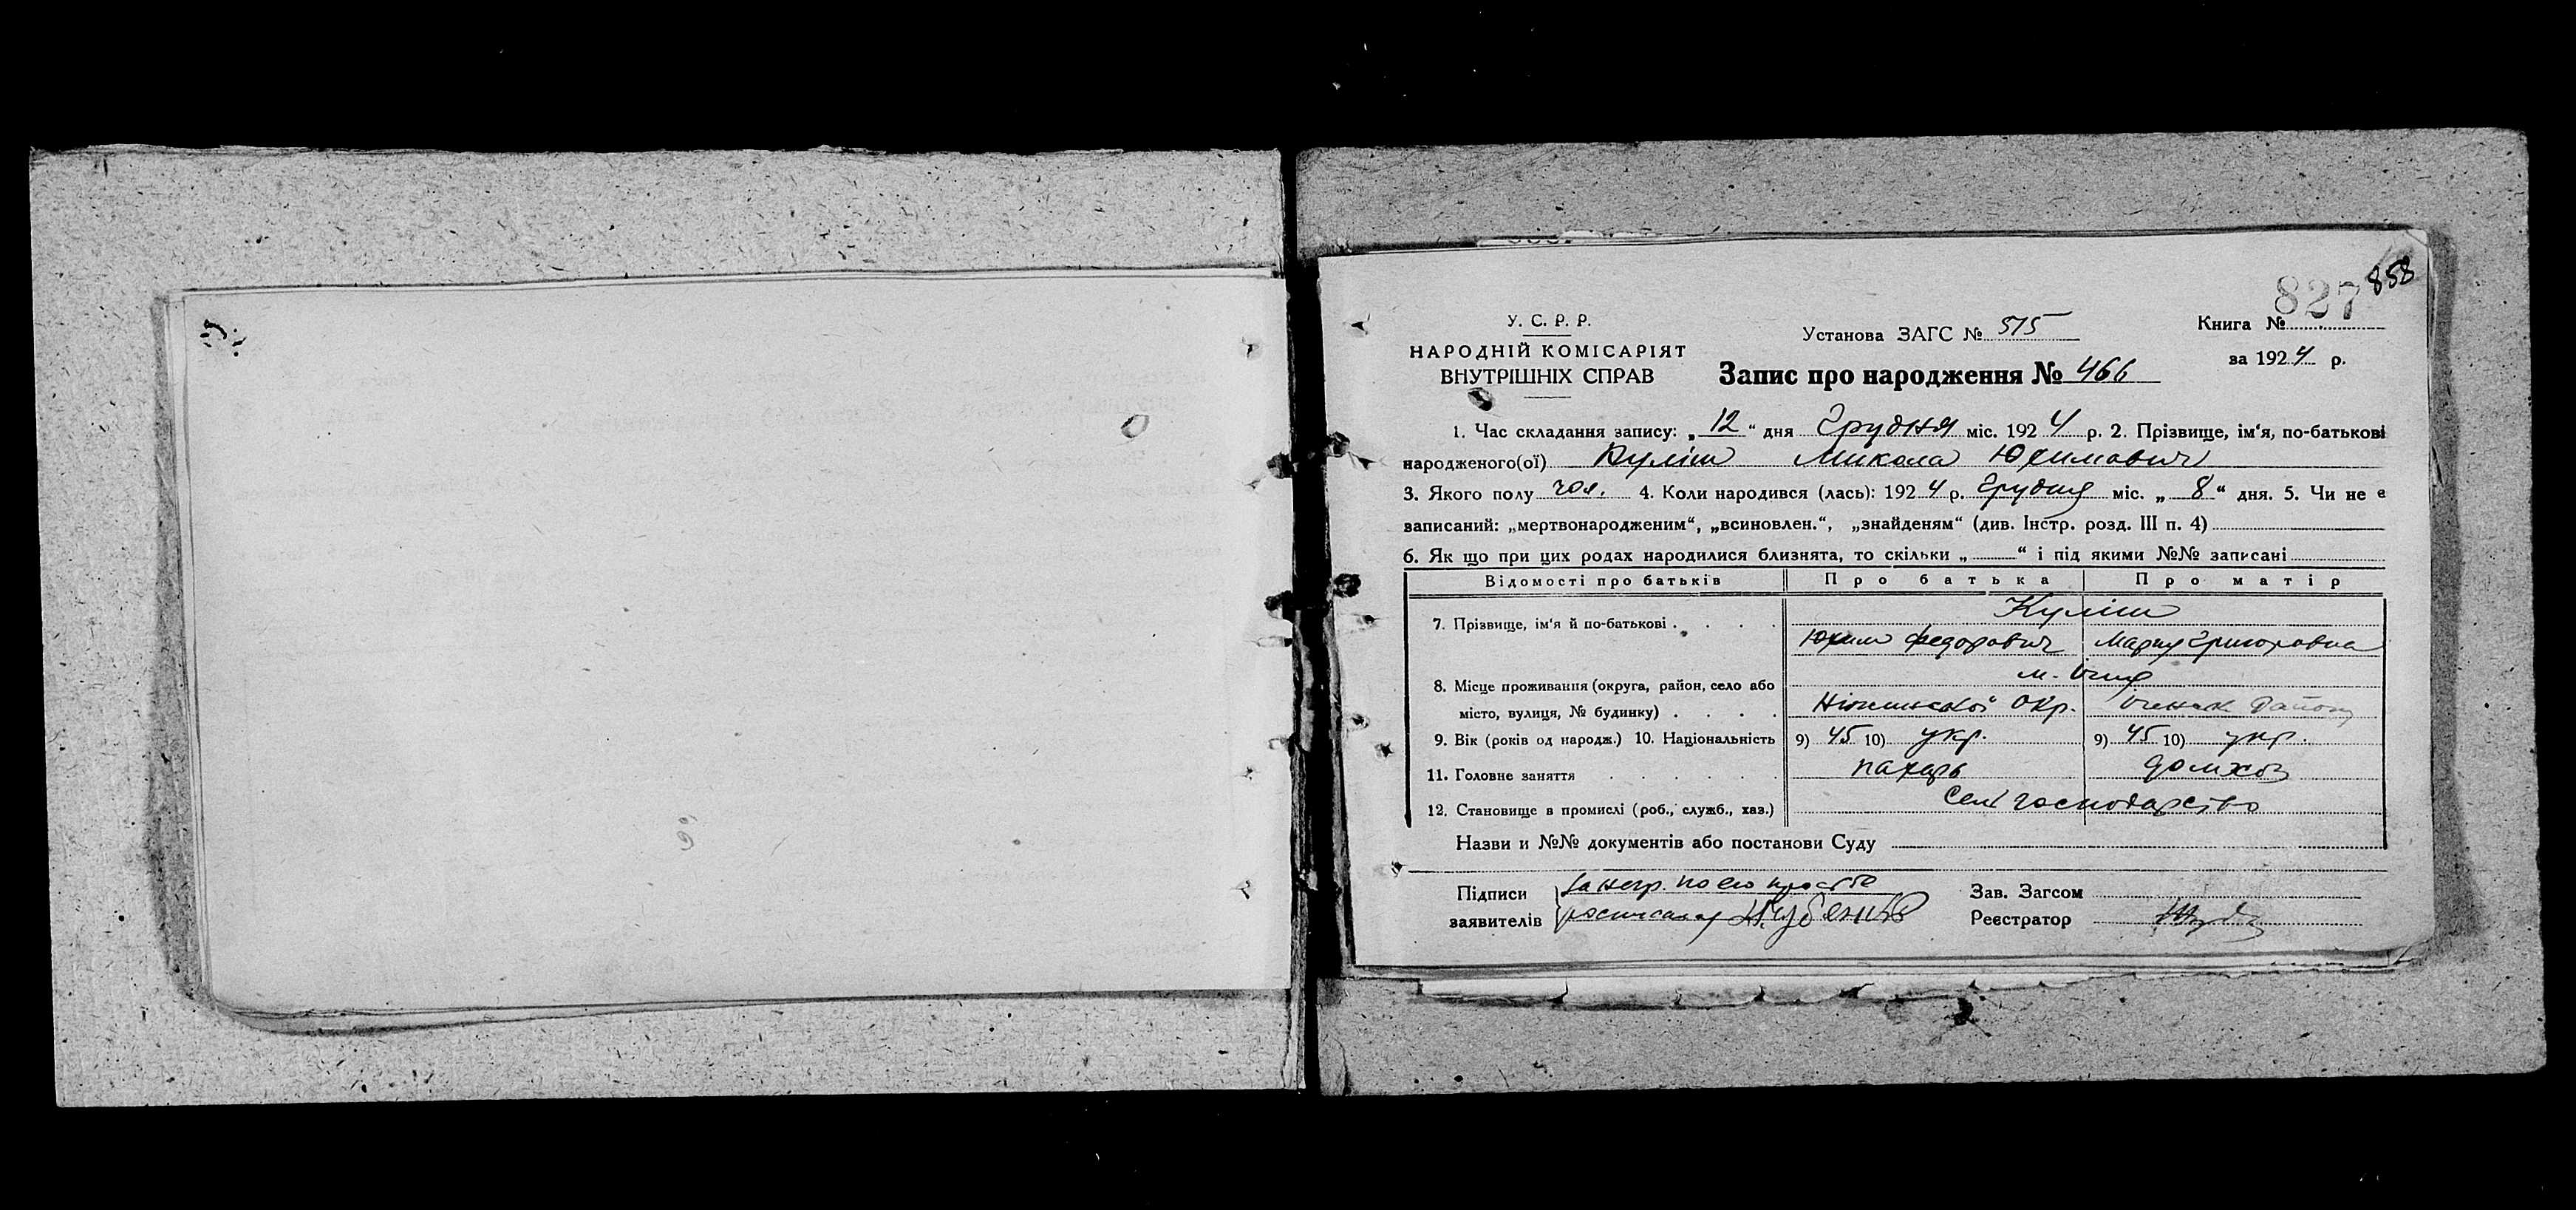 858
827
У. С. Р. Р.
НАРОДНІЙ КОМІСАРІЯТ
ВНУТРІШНІХ СПРАВ
Установа ЗАГС № 515
Книга №
за 1924 р.
Запис про народження № 466
1. Час складання запису: „12“ дня Грудня міс. 1924 р. 2. Прізвище, ім‘я, по-батькові
народженого(ої) Куліш Микола Юхимович
3. Якого полу чол. 4. Коли народився (лась): 1924 р. Грудня міс. „8“ дня. 5. Чи не є
записаний: „мертвонародженим“, „всиновлен.“, „знайденям“ (див. Інстр. розд. III п. 4)
6. Як що при цих родах народилися близнята, то скільки „ “ і під якими №№ записані
Відомості про батьків Про батька Про матір
7. Прізвище, ім‘я й по-батькові Куліш
Юхим Федорович Мария Григоровна
8. Місце проживання (округа, район, село або м. Ічня
місто, вулиця, № будинку) Ніжинської Окр. Іченськ. Району
9. Вік (років од народж.) 10. Національність 9) 45 10) укр. 9) 45 10) укр.
11. Головне заняття пахарь домхоз
12. Становище в промислі (роб., служб., хаз.) Сел господарство
Назви и №№ документів або постанови Суду
Підписи за негр. по его просьбе Зав. Загсом
заявителів росписался Реєстратор